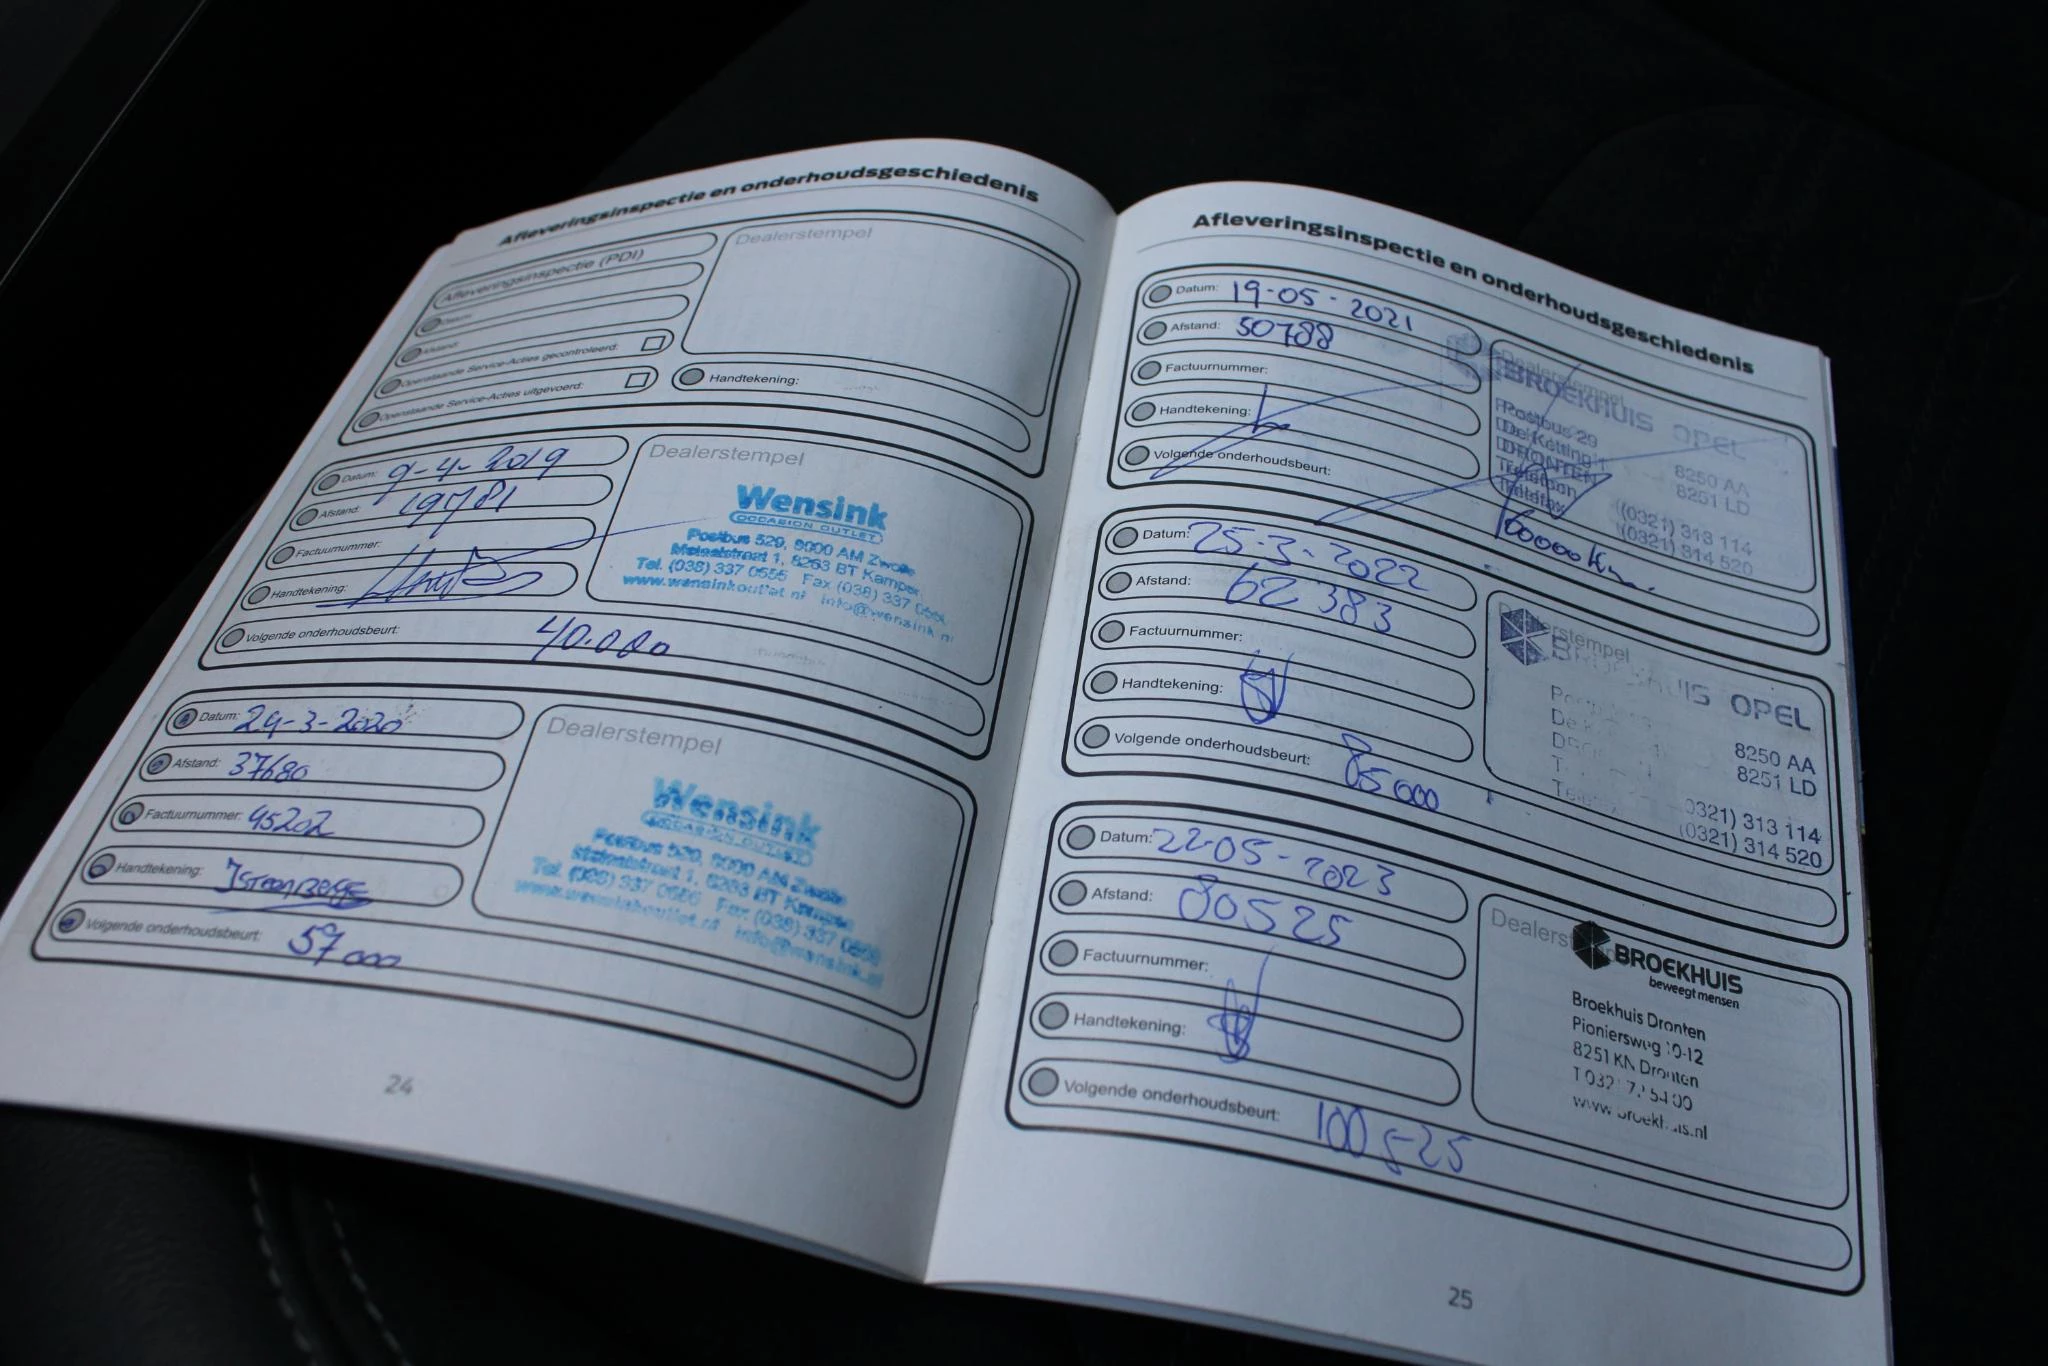 Afleveringsinspectie en onderhoudsgeschiedenis
Afleveringsinspectie (PDI)
Datum:
Afstand:
Openstaande Service-Acties gecontroleerd:
Openstaande Service-Acties uitgevoerd:
Dealerstempel
Handtekening:
Datum: 9-4-2019
Afstand: 19781
Factuurnummer:
Handtekening:
Volgende onderhoudsbeurt: 40.000
Dealerstempel
Wensink
OCCASION OUTLET
Postbus 529, 8000 AM Zwolle
Metaalstraat 1, 8263 BT Kampen
Tel. (038) 337 0555 Fax (038) 337
www.wensinkoutlet.nl info@wensink.nl
Datum: 24-3-2020
Afstand: 37680
Factuurnummer: 45202
Handtekening:
Volgende onderhoudsbeurt: 57000
Dealerstempel
Wensink
OCCASION OUTLET
Postbus 529, 8000 AM Zwolle
Metaalstraat 1, 8263 BT Kampen
Tel. (038) 337 Fax (038) 337
www.wensinkoutlet.nl info@wensink.nl
24
Afleveringsinspectie en onderhoudsgeschiedenis
Datum: 19-05-2021
Afstand: 50788
Factuurnummer:
Handtekening:
Volgende onderhoudsbeurt:
Dealerstempel
BROEKHUIS OPEL
Postbus 29 8250 AA
De Ketting 1 8251 LD
DRONTEN
Telefoon (0321) 313 114
Telefax (0321) 314 520
Datum: 25-3-2022
Afstand: 62383
Factuurnummer:
Handtekening:
Volgende onderhoudsbeurt: 85000
Dealerstempel
BROEKHUIS OPEL
8250 AA
8251 LD
(0321) 313 114
(0321) 314 520
Datum: 22-05-2023
Afstand: 80525
Factuurnummer:
Handtekening:
Volgende onderhoudsbeurt: 100525
BROEKHUIS
beweegt mensen
Broekhuis Dronten
Pioniersweg 10-12
8251 KN Dronten
www.broekhuis.nl
25